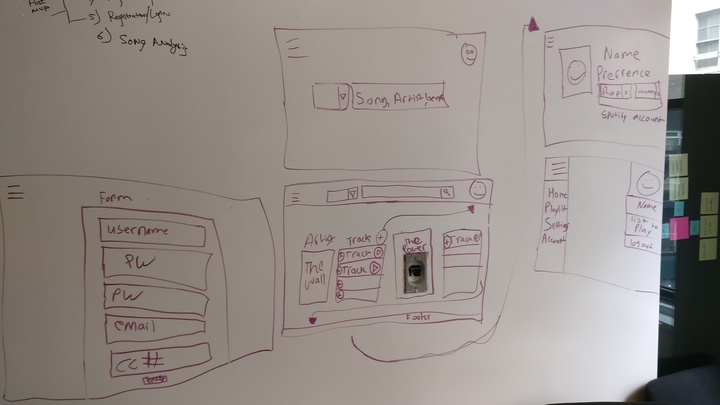 Post
MVP
5) Registration/Login
6) Song Analysis
Song, Artist, genre
Name
Prefrence
Rap x
Spotify account
Form
username
PW
PW
email
CC #
Artist
The
Wall
Track +
Track
Track
The
Power
Track
Footer
Home
Playlist
Setting
Account
Name
list to
Play
logout